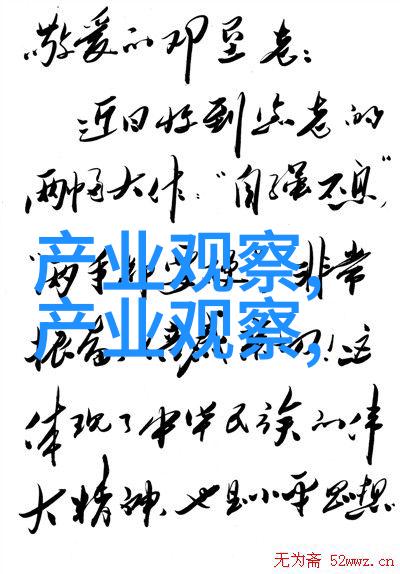 敬爱的邓垦老：
近日收到您老的
两幅大作：“自强不息”，
“两手都要硬”非常
产业观察，
产业观察，
这
体现了中华民族的伟
大精神，也是小平思想
无为斋 52wwz.cn